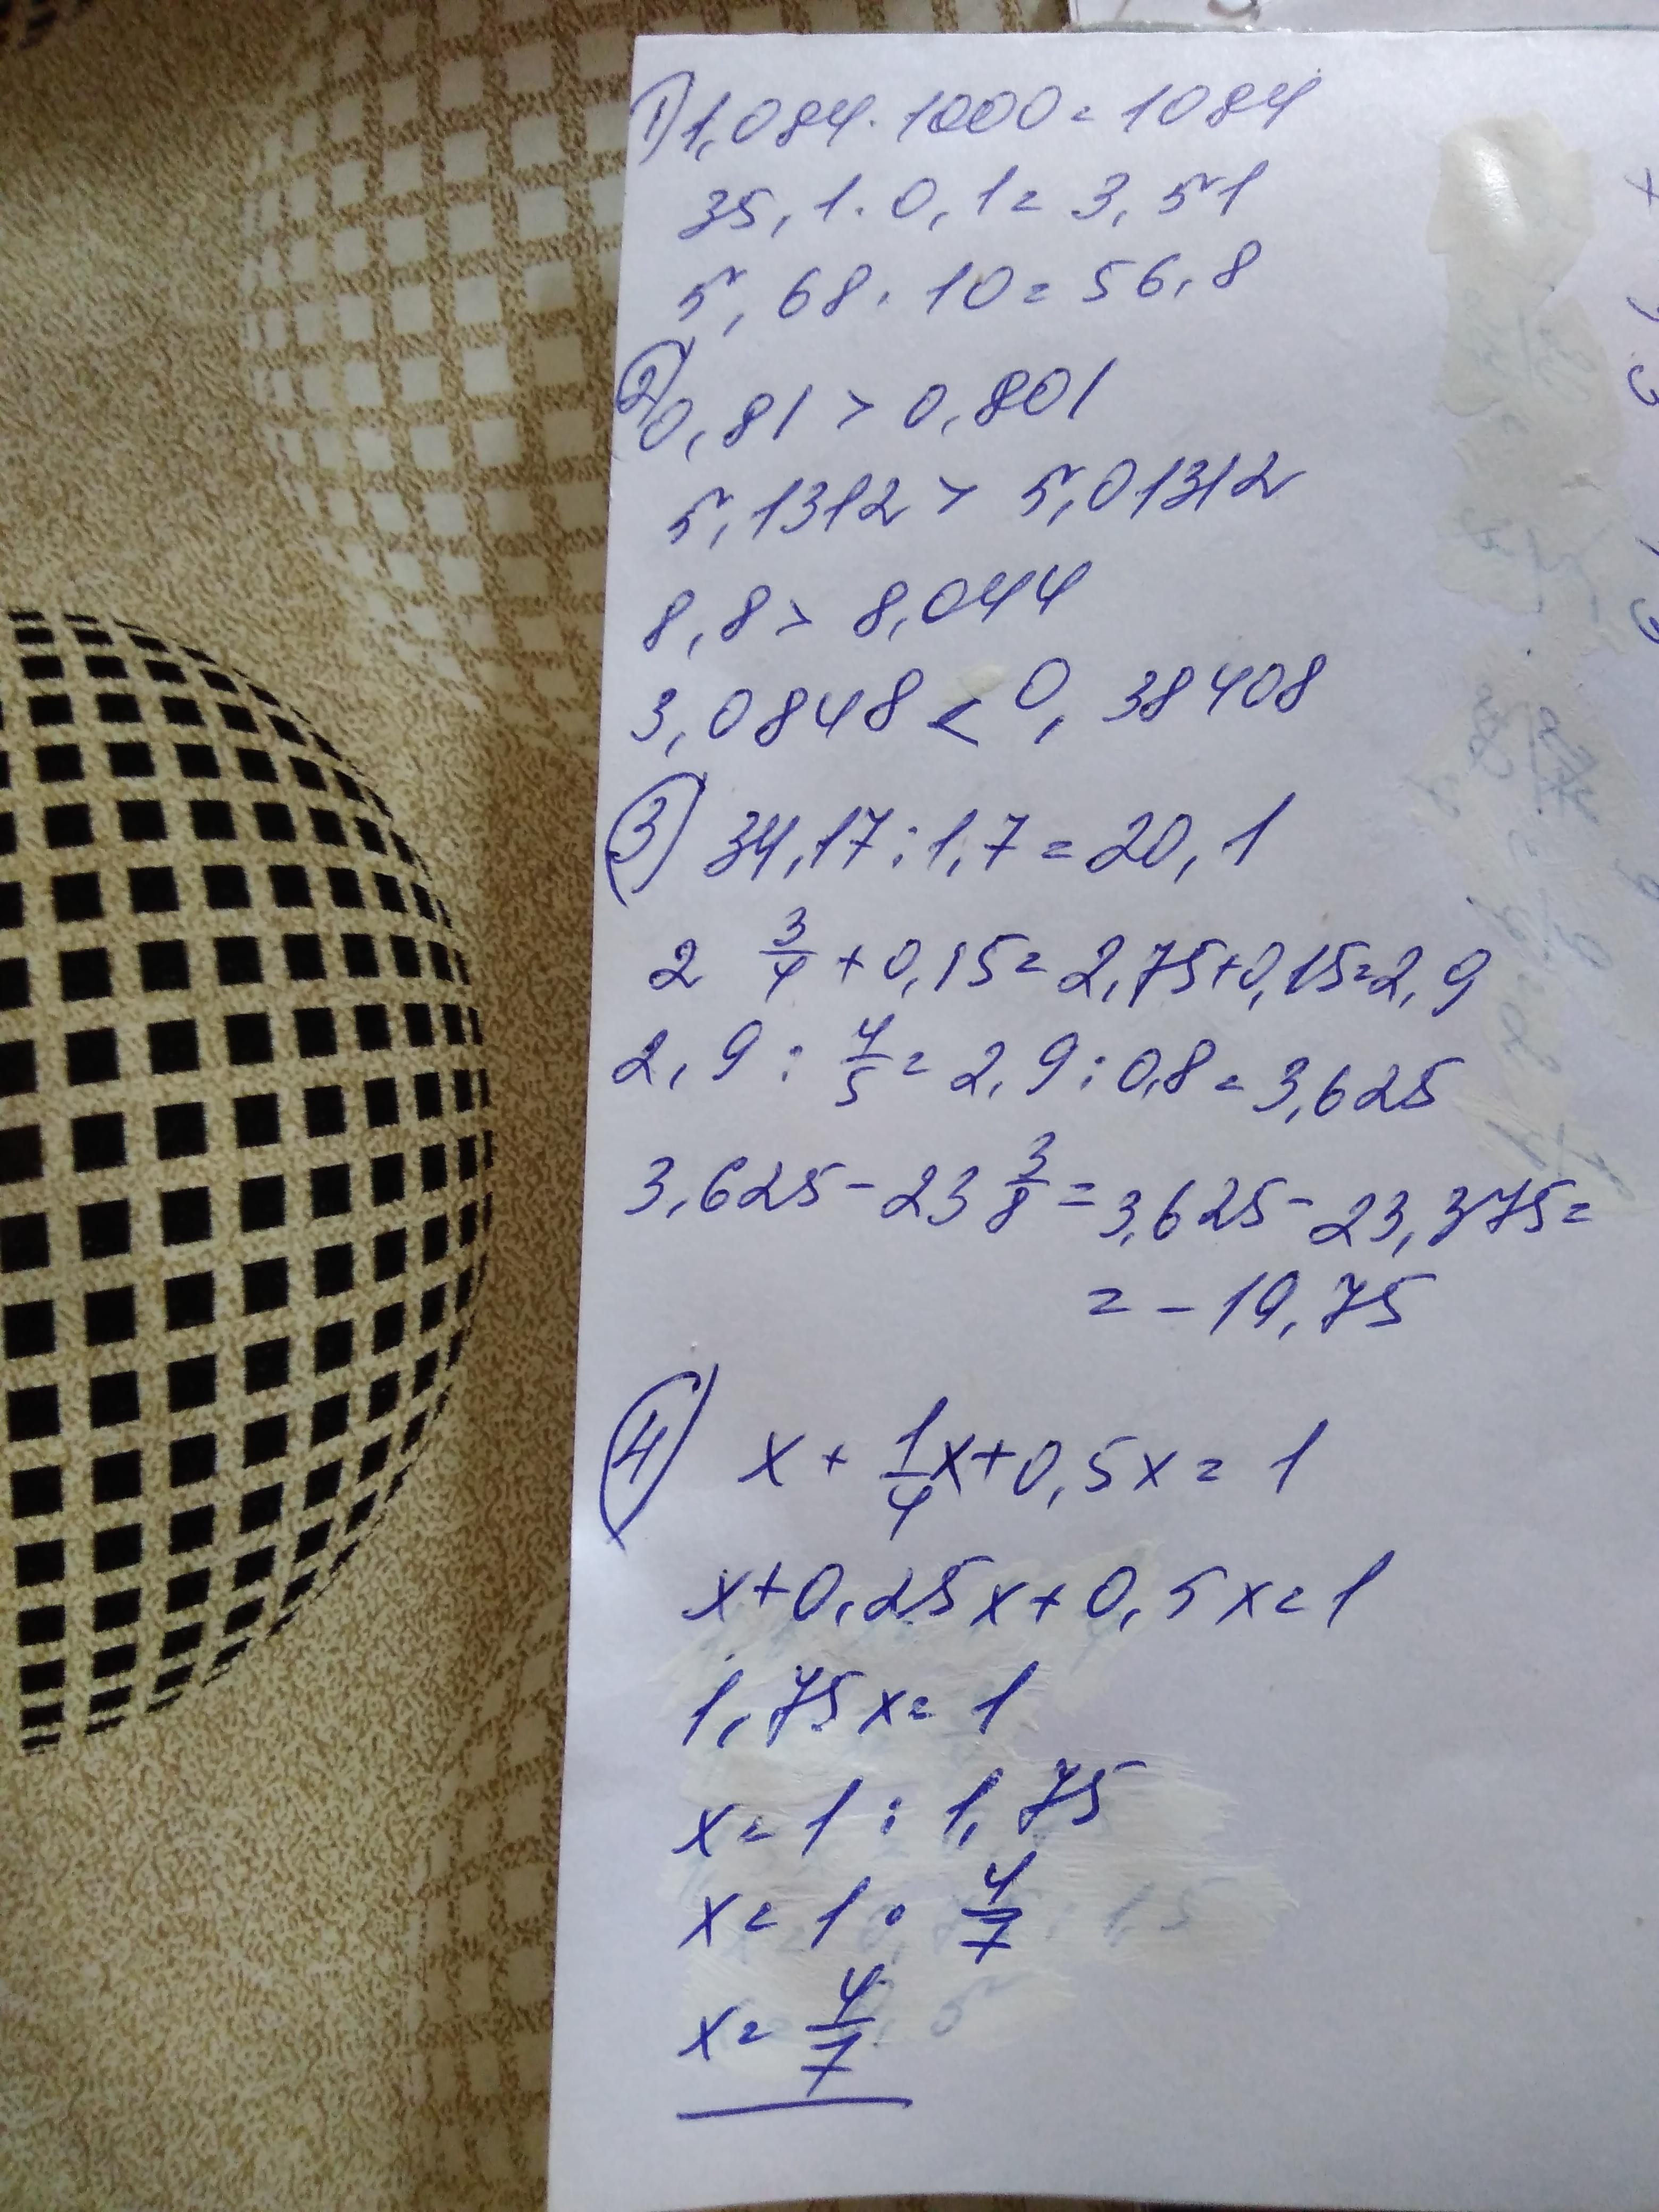 1) 1,084 · 1000 = 1084
35,1 · 0,1 = 3,51
5,68 · 10 = 56,8
2) 0,81 > 0,801
5,1312 > 5,01312
8,8 > 8,044
3,0848 < 0,38408
3) 34,17 : 1,7 = 20,1
2 3/4 + 0,15 = 2,75 + 0,15 = 2,9
2,9 : 4/5 = 2,9 : 0,8 = 3,625
3,625 - 23 3/8 = 3,625 - 23,375 =
= - 19,75
4) x + 1/4 x + 0,5x = 1
x + 0,25x + 0,5x = 1
1,75x = 1
x = 1 : 1,75
x = 1 · 4/7
x = 4/7